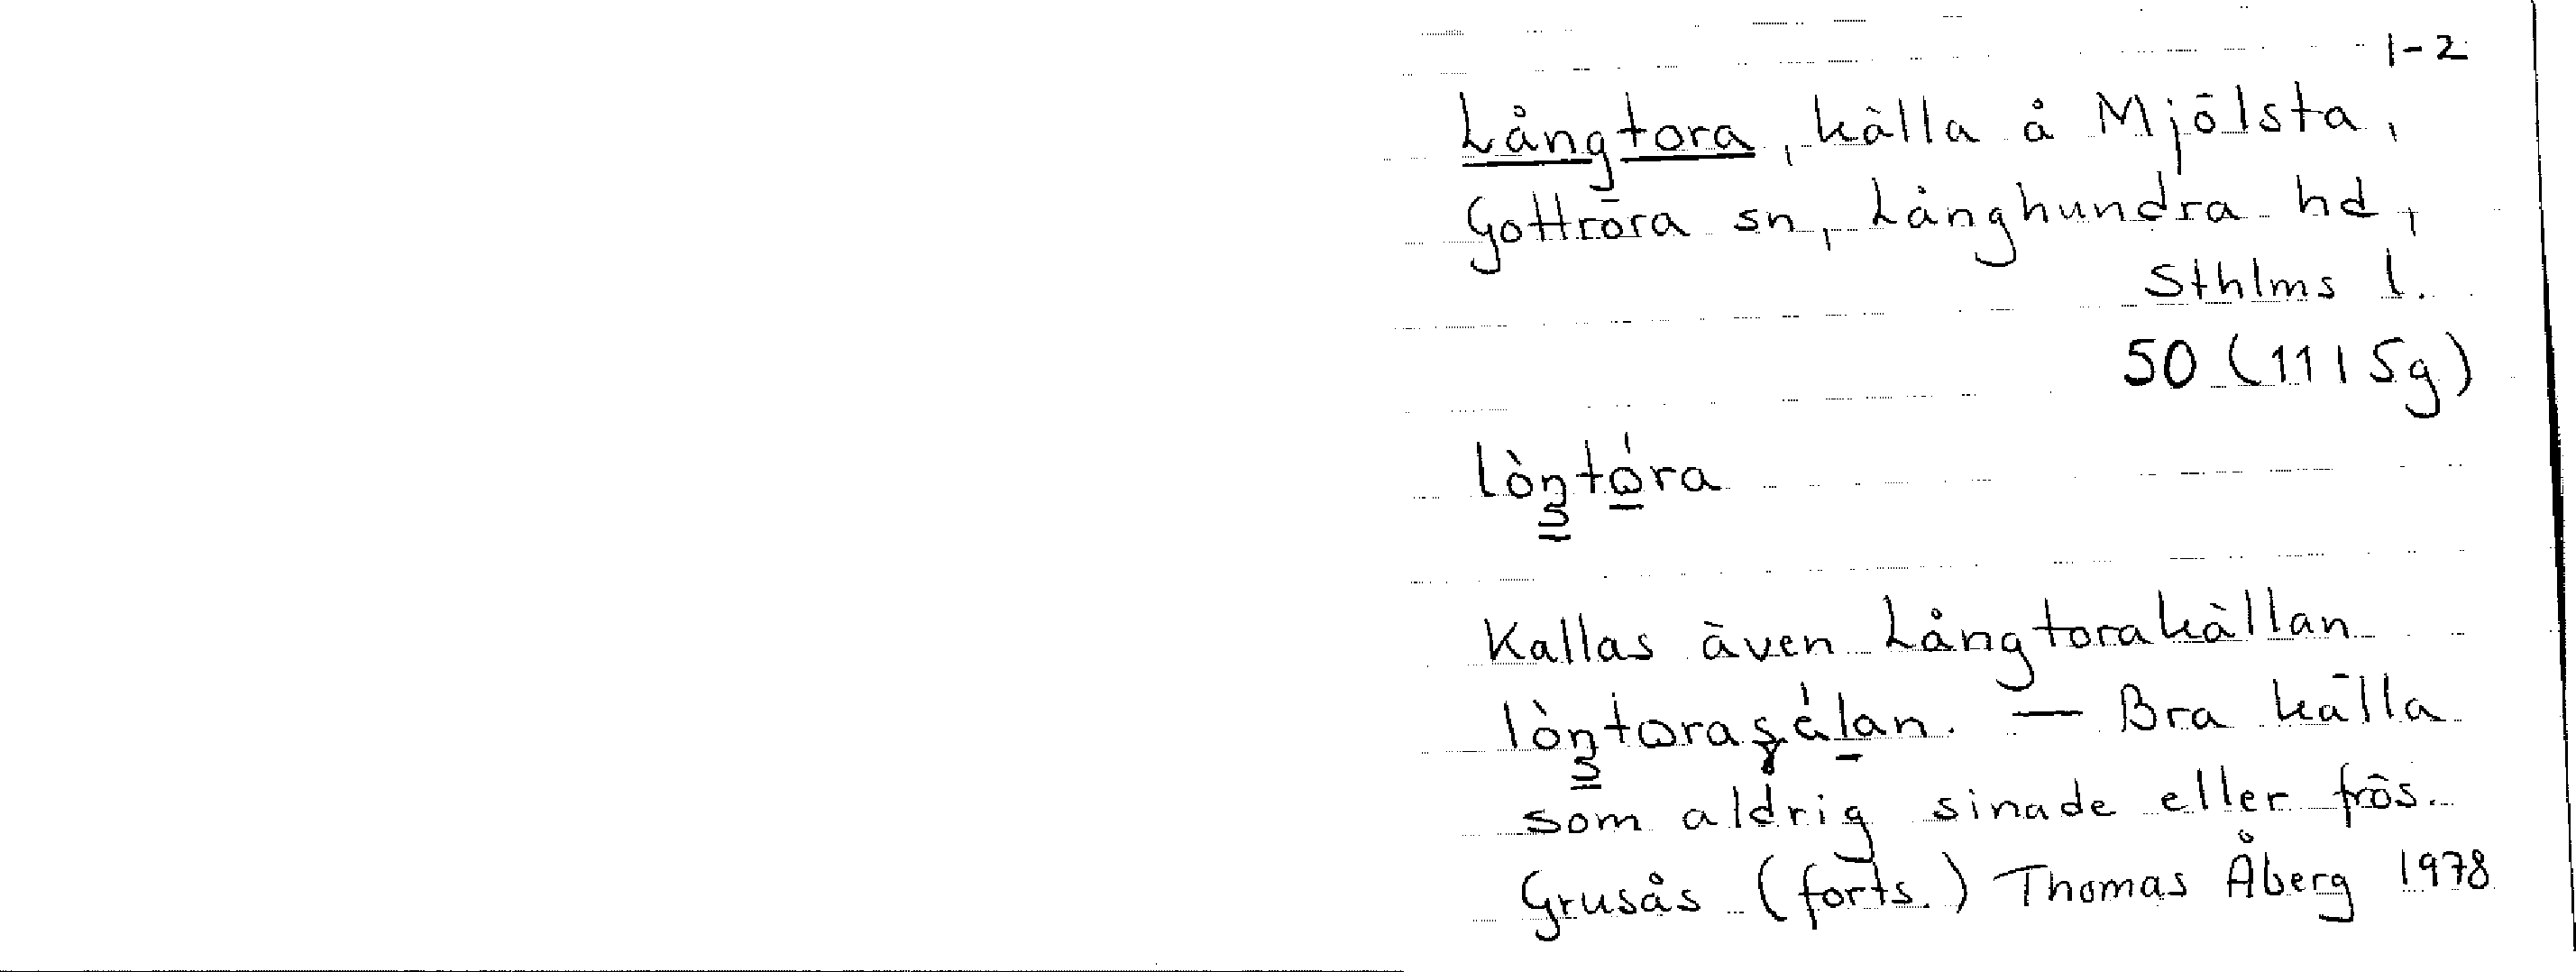 1-2
Långtora, källa å Mjölsta,
Gottröra sn, Långhundra hd,
Sthlms l.
50 (11I 5g)
Kallas även Långtorakällan
— Bra källa
som aldrig sinade eller frös.
Grusås (forts.) Thomas Åberg 1978